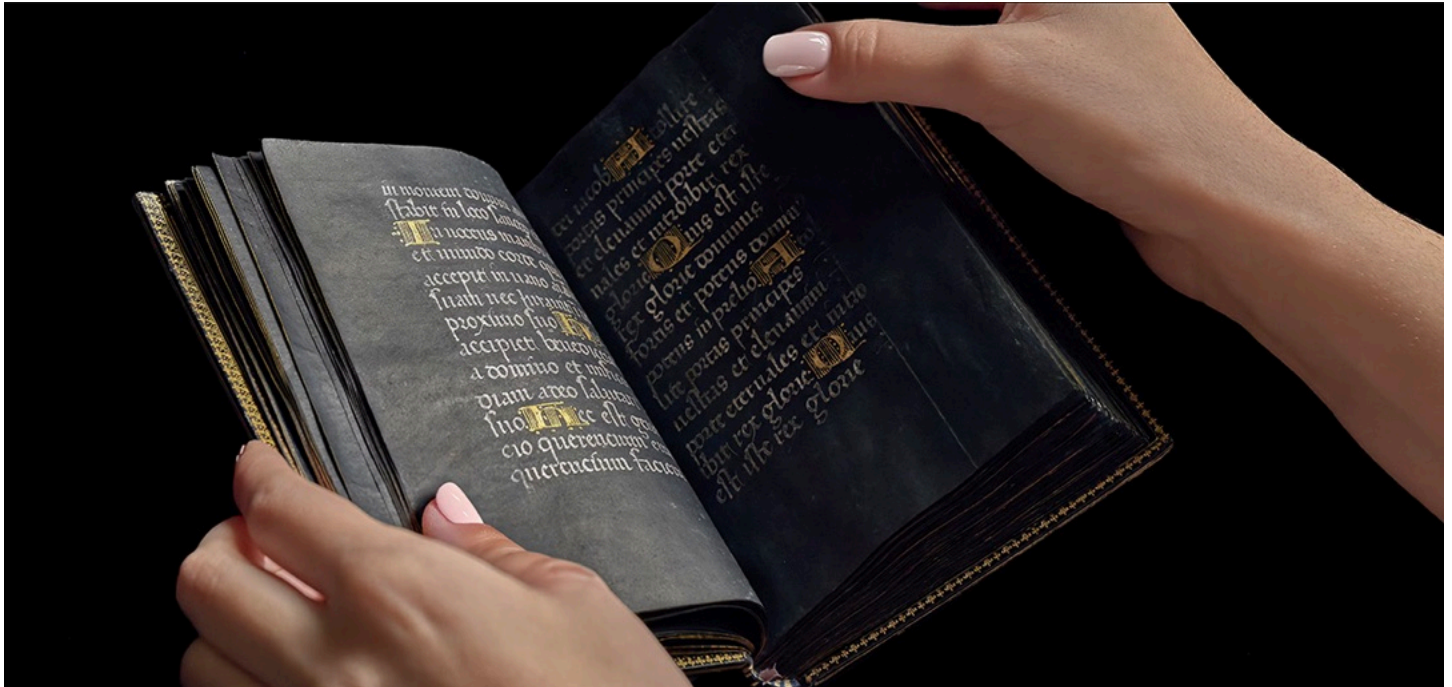 in montem domini
stabit in loco sanc
Innocens mani
et mundo corde qui
accepit in vano ani
suam nec iuravit
proximo suo
accipiet benedic
a domino et miser
diam a deo salutari
suo Hec est gene
cio querencium
querencium facie
dei iacob Attollite
portas principes vestras
et elevamini porte eter
nales et introibit rex
glorie Quis est iste
rex glorie dominus
fortis et potens domin
potens in prelio Atto
lite portas principes
vestras et elevamini
porte eternales et intro
ibit rex glorie Quis
est iste rex glorie